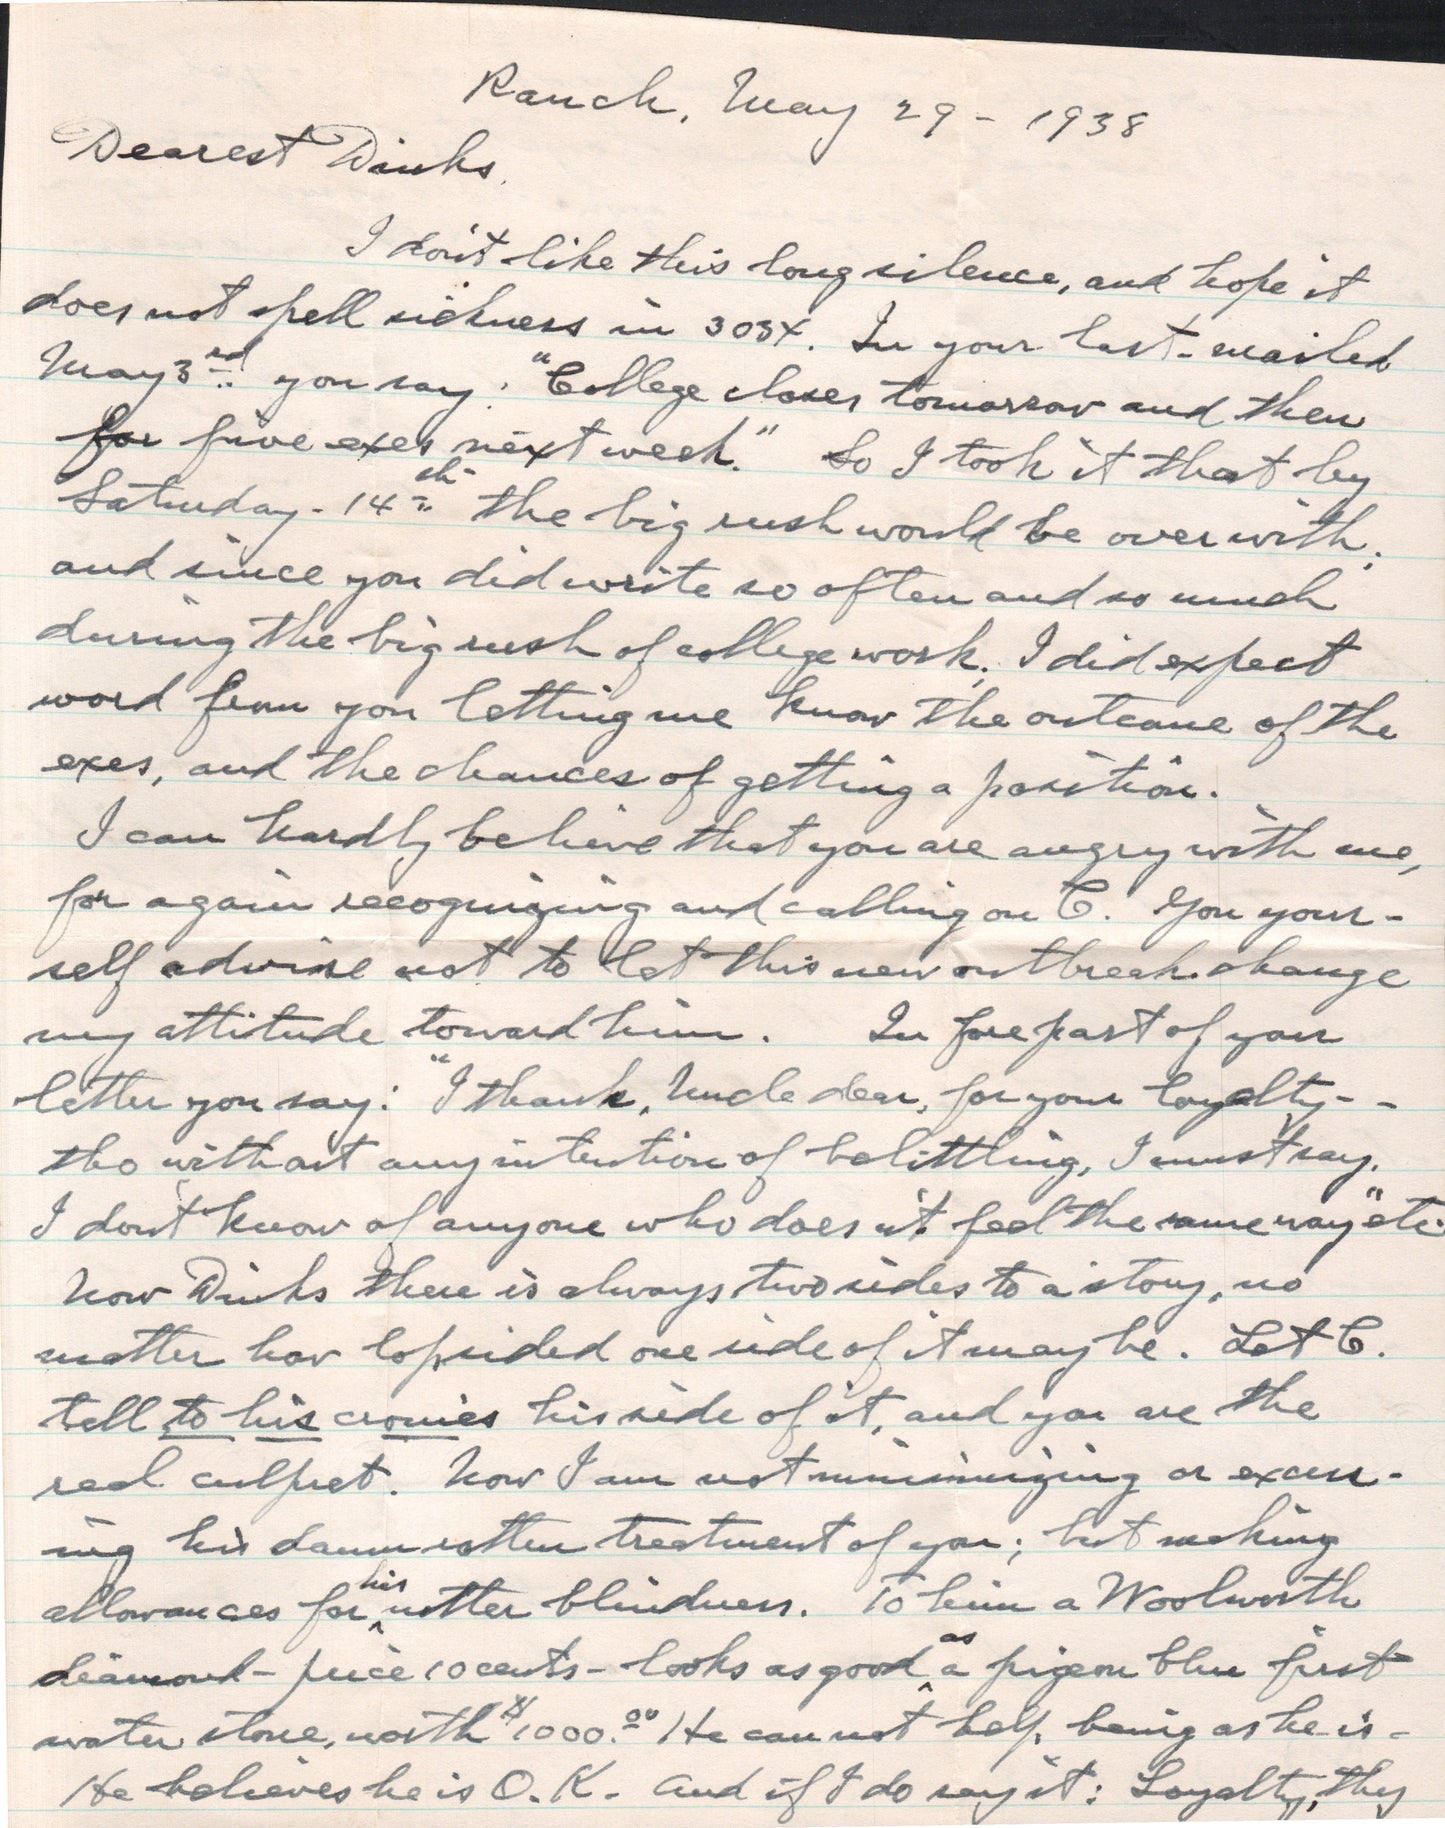 Ranch, May 29 - 1938
Dearest Dinks,
I don't like this long silence, and hope it
does not spell sickness in 3034. In your last - mailed
May 3rd you say: "College closes tomorrow and then
for five exes next week." So I took it that by
Saturday - 14th the big rush would be over with;
and since you did write so often and so much
during the big rush of college work, I did expect
word from you letting me know the outcome of the
exes, and the chances of getting a position.
I can hardly believe that you are angry with me,
for again recognizing and calling on C. You your-
self advise not to let this new outbreak change
my attitude toward him. In forepart of your
letter you say: "I thank, Uncle dear, for your loyalty - -
tho without any intention of belittling, I must say,
I don't know of anyone who does n't feel the same way" etc.
Now Dinks there is always two sides to a story, no
matter how lopsided one side of it may be. Let C.
tell to his cronies his side of it, and you are the
real culpret. Now I am not minimizing or excus-
ing his damn rotten treatment of you; but making
allowances for his utter blindness. To him a Woolworth
diamond - price 10 cents - looks as good as a pigeon blue first
water stone, worth $1000.00 He can not help being as he is -
He believes he is O.K. And if I do say it: Loyalty, thy